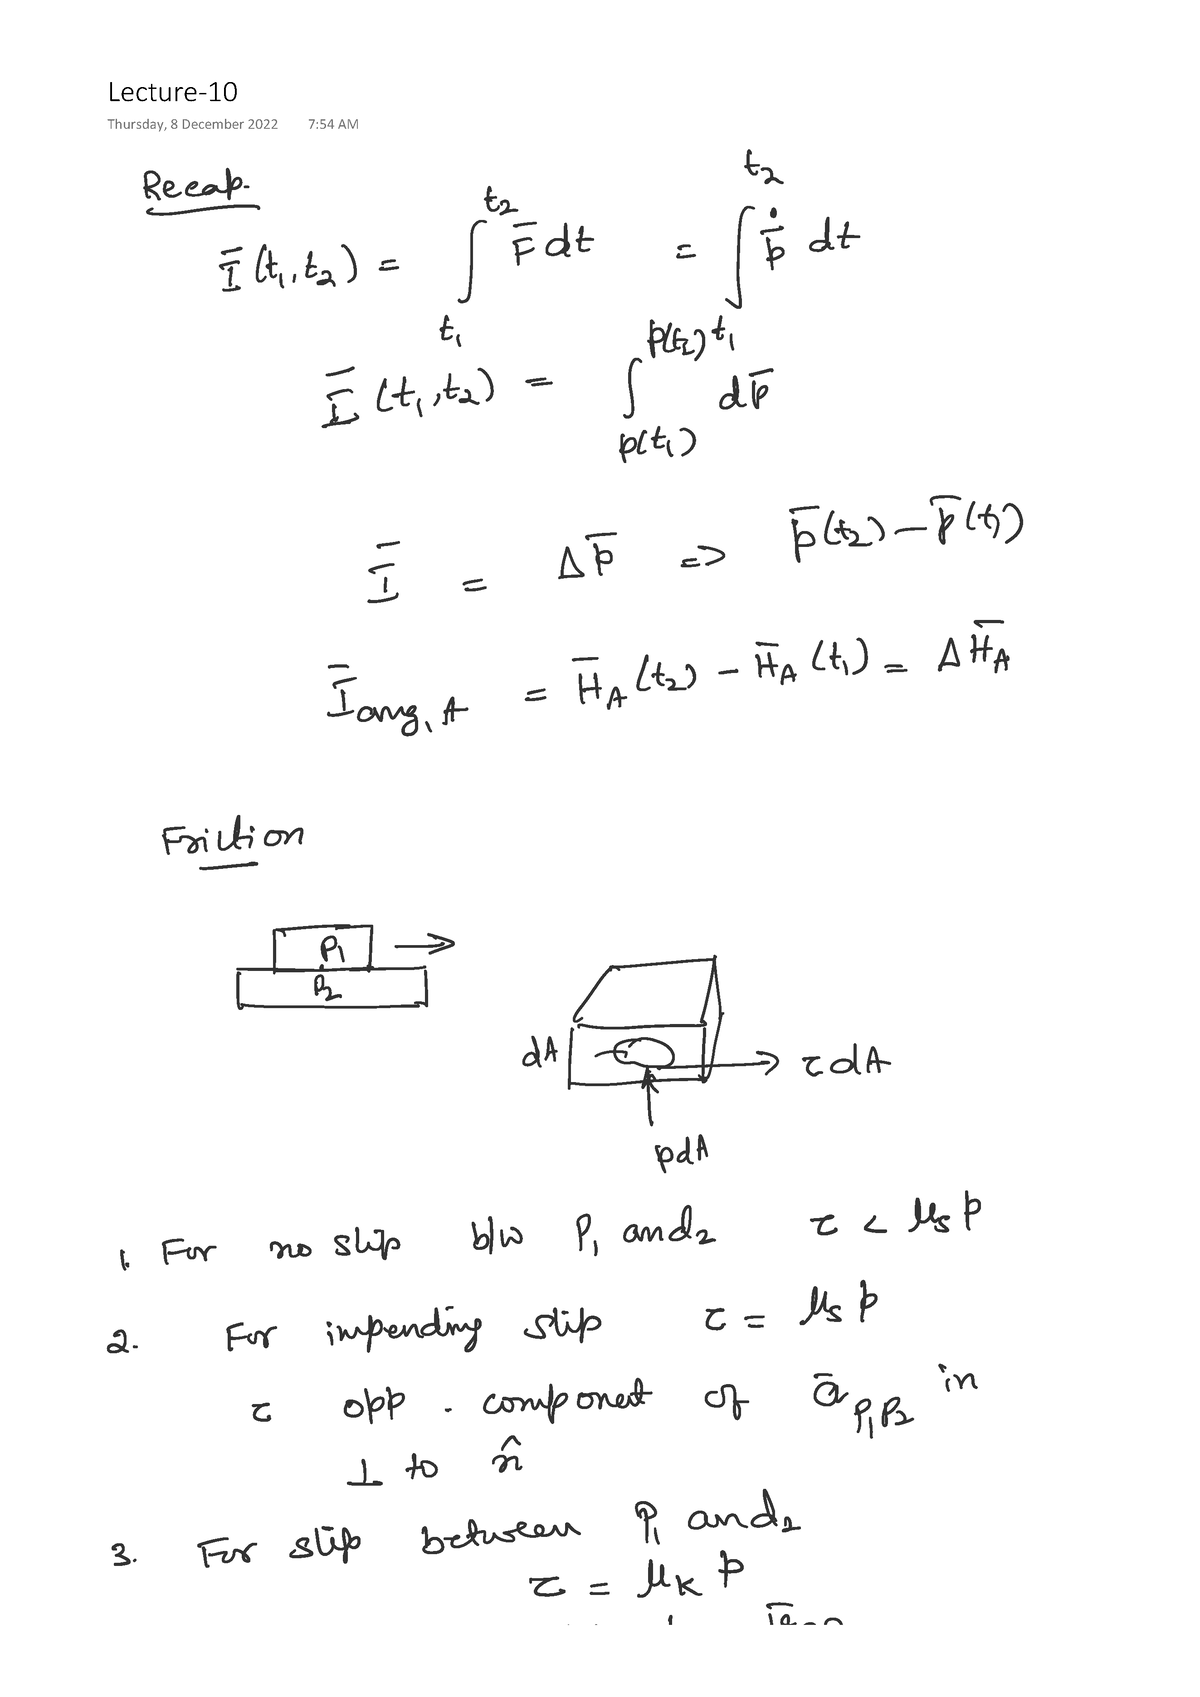 Lecture-10
Thursday, 8 December 2022 7:54 AM
Recap.
Ī (t₁, t₂) = ∫_{t₁}^{t₂} F̄ dt = ∫_{t₁}^{t₂} ṗ̄ dt
Ī (t₁, t₂) = ∫_{p(t₁)}^{p(t₂)} dp̄
Ī = Δp̄ => p̄(t₂) − p̄(t₁)
Ī ang, A = H̄_A (t₂) − H̄_A (t₁) = Δ H̄_A
Friction
P₁
P₂
dA
τ dA
pdA
1. For no slip b/w P₁ and₂ τ < μₛ p
2. For impending slip τ = μₛ p
τ opp. component of ā_{P₁P₂} in
⊥ to n̂
3. For slip between P₁ and₂
τ = μ_K p